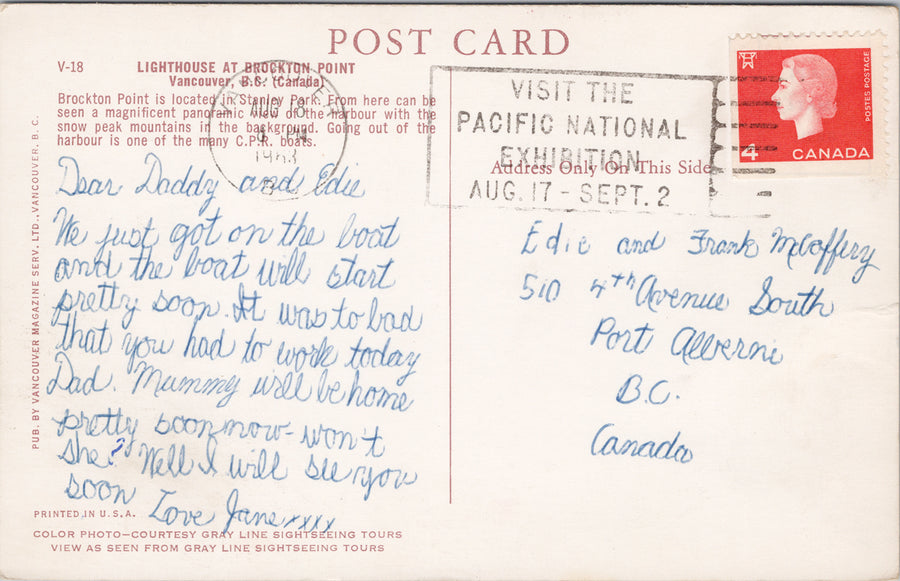 POST CARD
V-18 LIGHTHOUSE AT BROCKTON POINT
Vancouver, B.C. (Canada)
Brockton Point is located in Stanley Park. From here can be
seen a magnificent panoramic view of the harbour with the
snow peak mountains in the background. Going out of the
harbour is one of the many C.P.R. boats.
AUG 18
PM
1963
VISIT THE
PACIFIC NATIONAL
EXHIBITION
AUG. 17 - SEPT. 2
POSTES POSTAGE
4 CANADA
Address Only On This Side
Dear Daddy and Edie
We just got on the boat
and the boat will start
pretty soon. It was to bad
that you had to work today
Dad. Mummy will be home
pretty soon now - won't
she? Well I will see you
soon
Love Jane xxxx
Edie and Frank McCaffery
510 4th Avenue South
Port Alberni
B.C.
Canada
PUB. BY VANCOUVER MAGAZINE SERV. LTD., VANCOUVER, B.C.
PRINTED IN U.S.A.
COLOR PHOTO—COURTESY GRAY LINE SIGHTSEEING TOURS
VIEW AS SEEN FROM GRAY LINE SIGHTSEEING TOURS